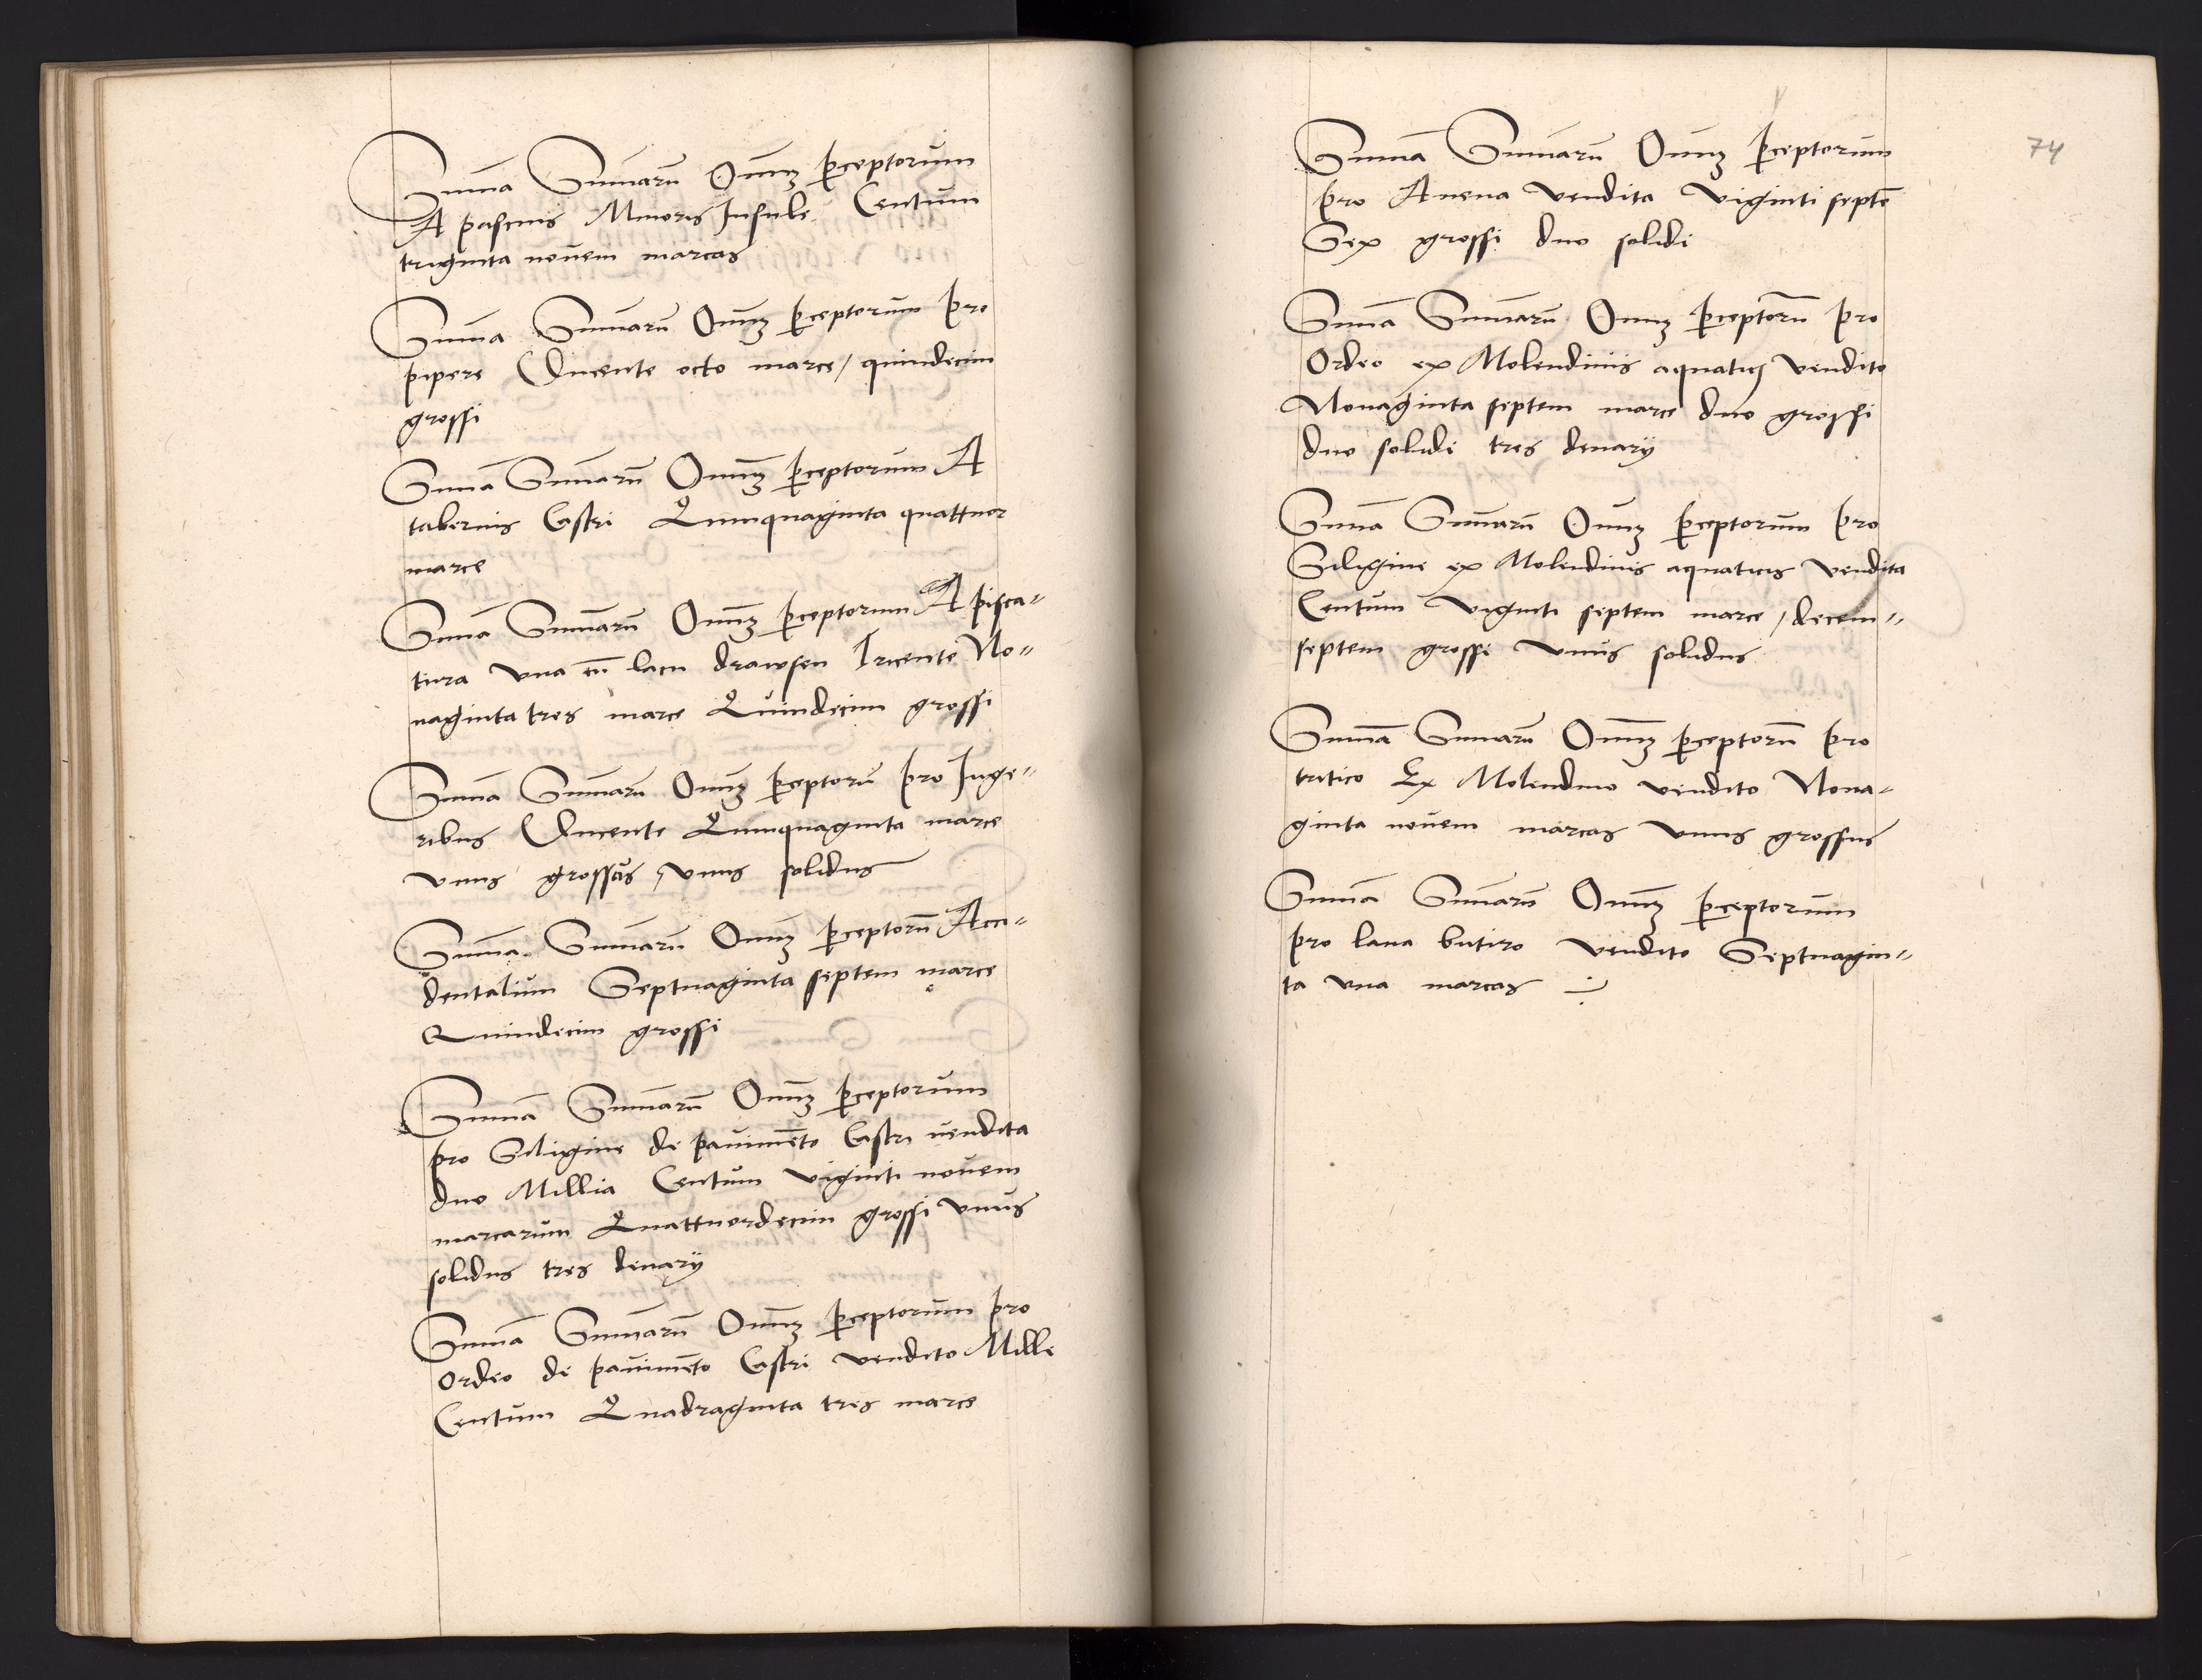 Suma Sumaru Oniuz ꝑceptorum
A pascuis Minoris Insule Centum
triginta novem marcas
Suma Sumaru Oniuz ꝑceptorum pro
pipere Ducente octo marce / quindecim
grossi
Suma Sumaru Oniuz ꝑceptorum A
tabernis Castri Quinquaginta quattuor
marce
Suma Sumaru Oniuz ꝑceptorum A pisca„
tura vna cu lacu drawsen Trcente No„
naginta tres marce Quindecim grossi
Suma Sumaru Oniuz ꝑceptoru pro Juge„
ribus Ducente Quinquaginta marce
vnus grossus / vnus solidus
Suma Sumaru Oniuz ꝑceptoru Acci„
dentalium Septuaginta septem marce
Quindecim grossi
Suma Sumaru Oniuz ꝑceptorum
pro Siligine de pauimeto Castri vendita
duo Millia Centum viginti novem
marcarum Quattuordecim grossi vnus
solidus tres denarÿ
Suma Sumaru Oniuz ꝑceptorum pro
Ordeo de pauimeto Castri vendito Mille
Centum Quadraginta tres marce
74
Suma Sumaru Oniuz ꝑceptorum
pro Auena vendita viginti septe
Sex grossi duo solidi
Suma Sumaru Oniuz ꝑceptoru pro
Ordeo ex Molendinis aquaticis vendito
Nonaginta septem marce duo grossi
duo solidi tres denarÿ
Suma Sumaru Oniuz ꝑceptorum pro
Siligine ex Molendinis aquaticis vendita
Centum viginti septem marce / decem„
septem grossi vnus solidus
Suma Sumaru Oniuz ꝑceptoru pro
tritico Ex Molendino vendito Nona„
ginta novem marcas vnus grossus
Suma Sumaru Oniuz ꝑceptorum
pro lana butiro vendito Septuagin„
ta vna marcas